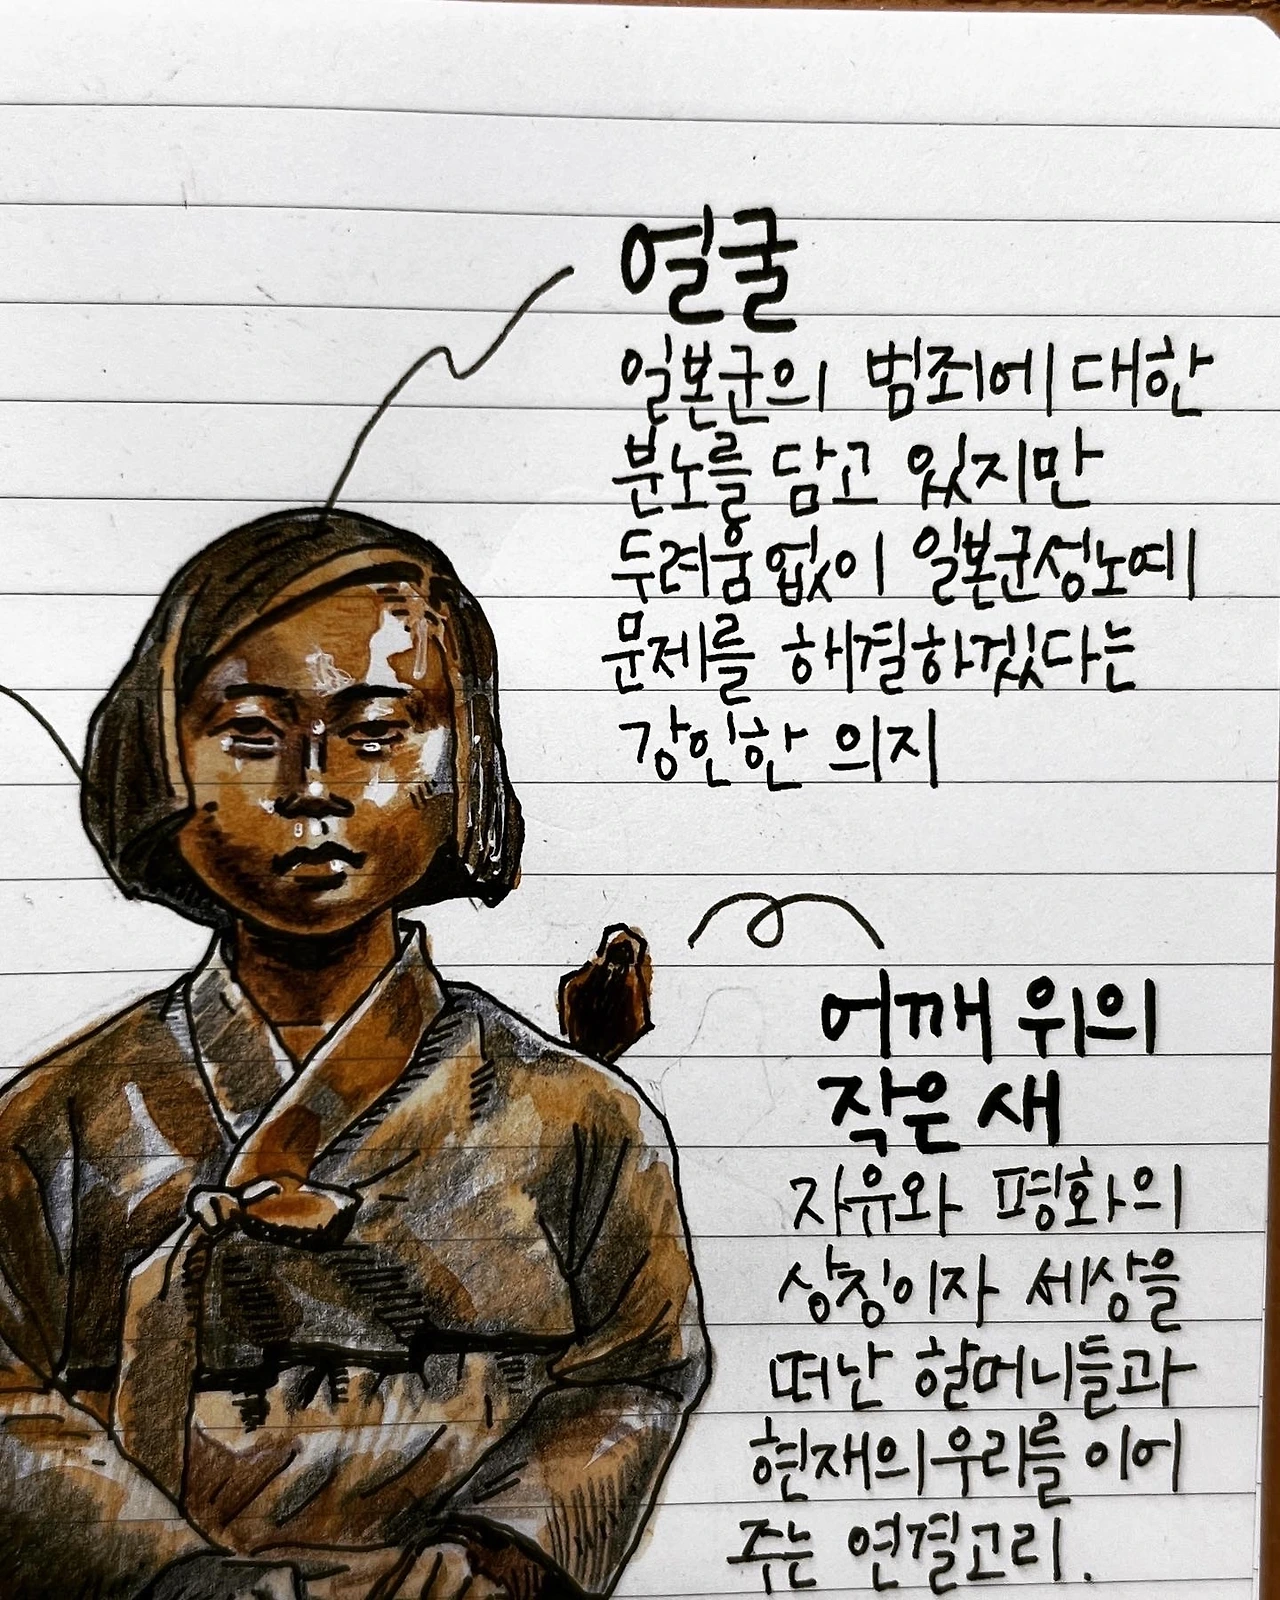 얼굴
일본군의 범죄에 대한
분노를 담고 있지만
두려움 없이 일본군성노예
문제를 해결하겠다는
강인한 의지
어깨 위의
작은 새
자유와 평화의
상징이자 세상을
떠난 할머니들과
현재의 우리를 이어
주는 연결고리.